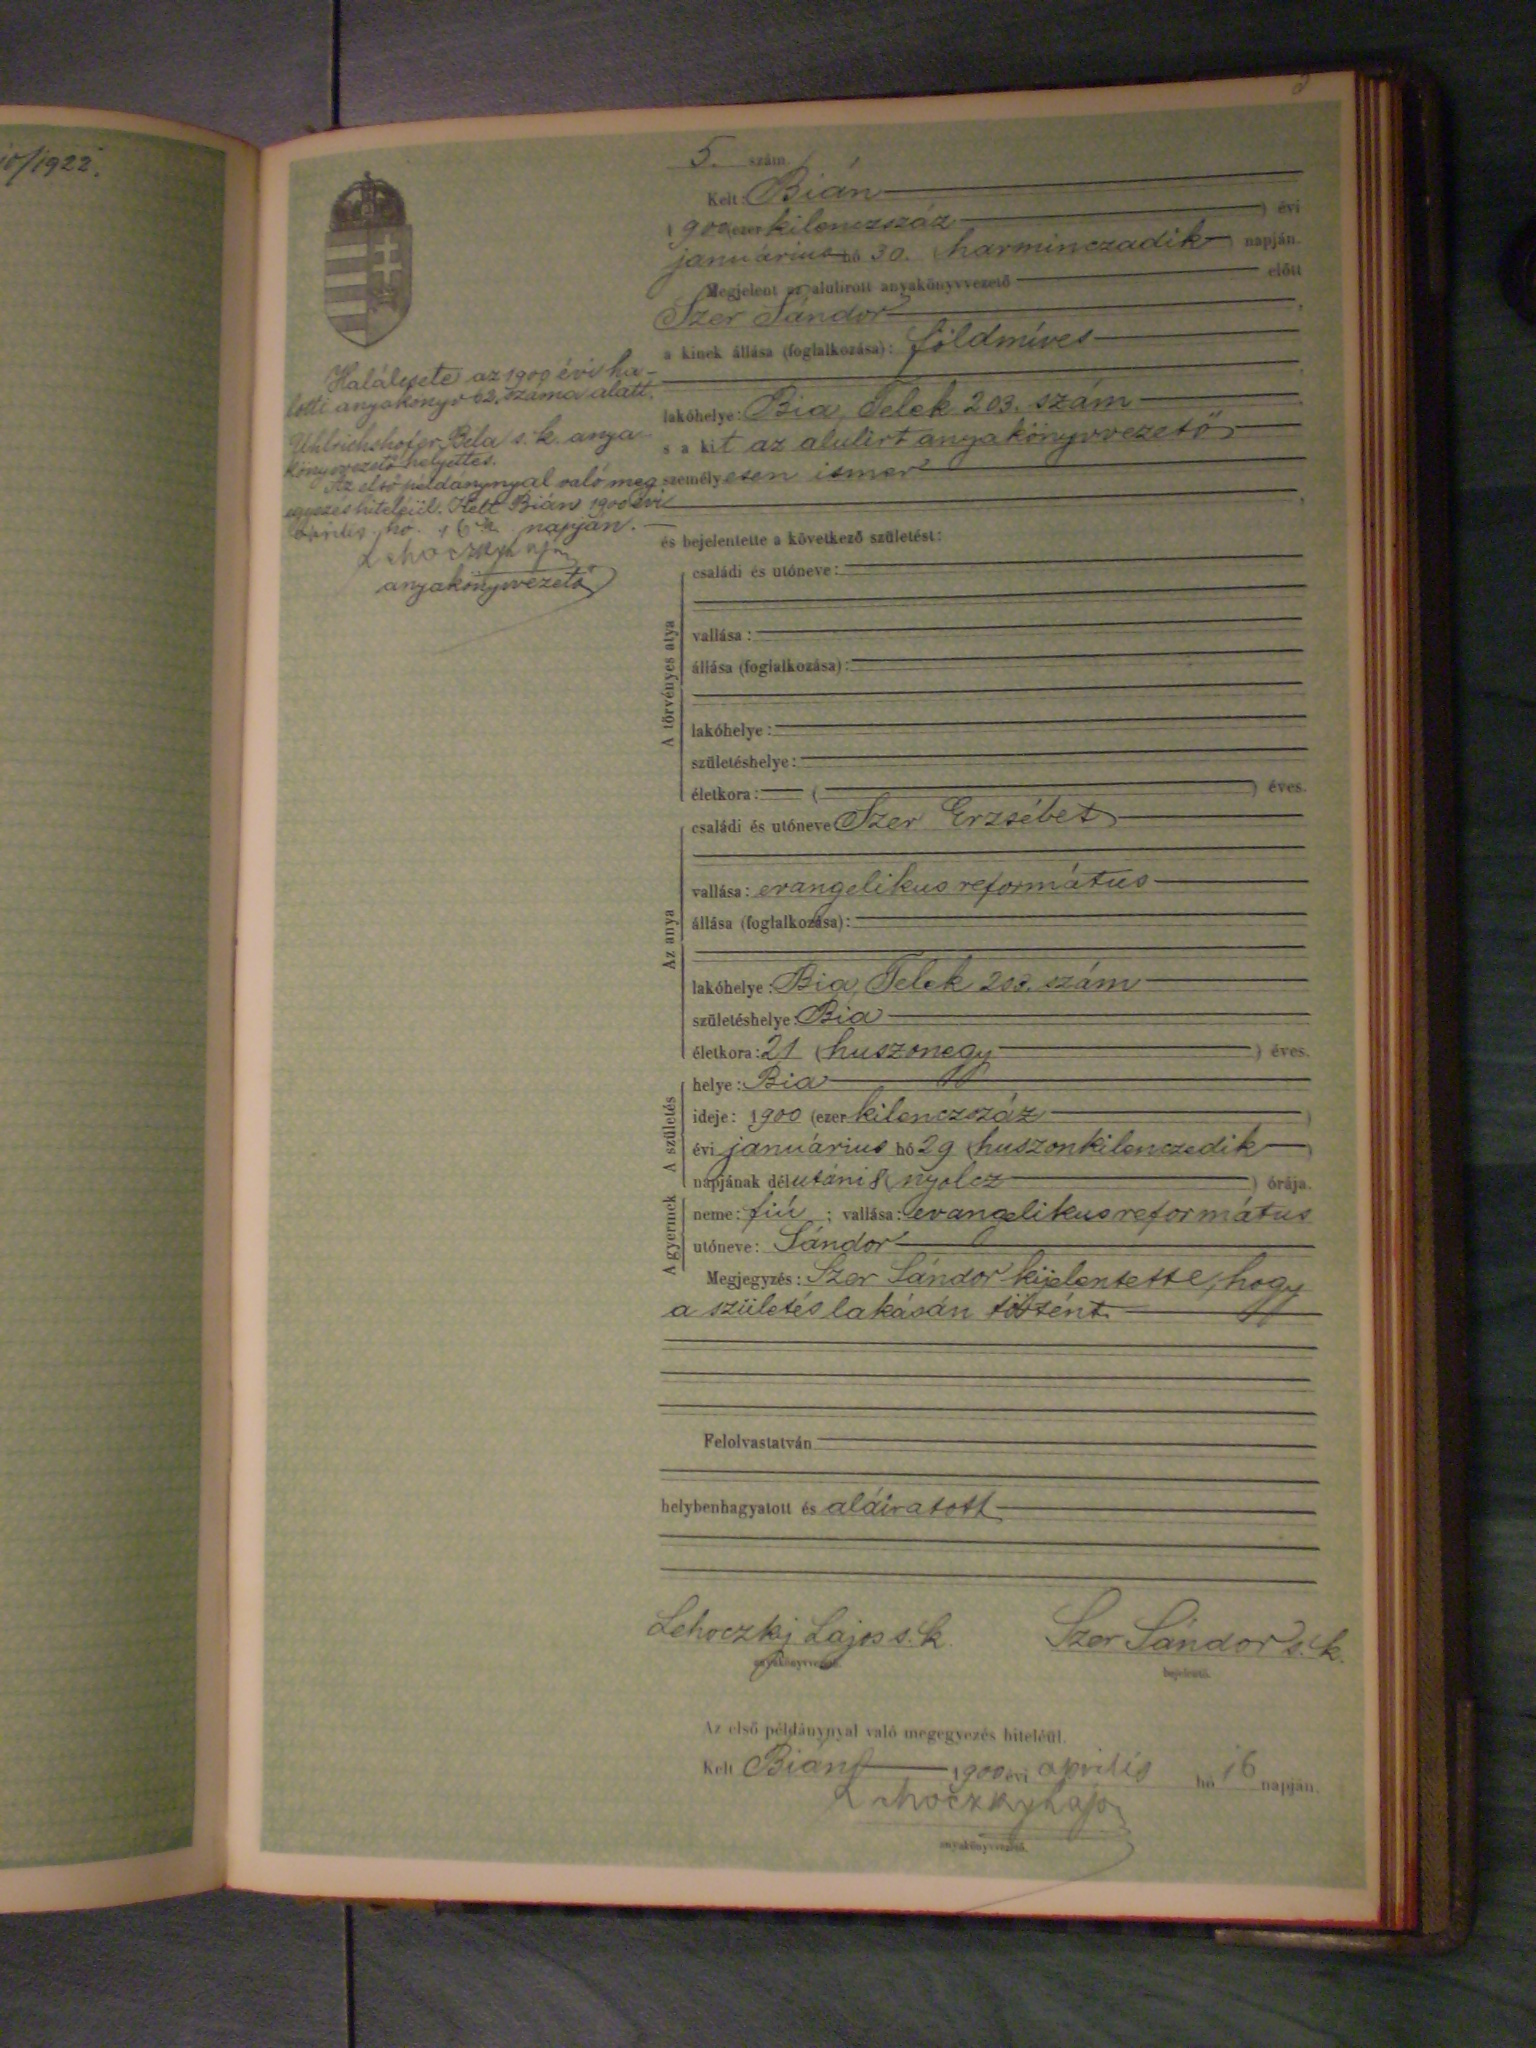 10/1922.
5. szám
Kelt: Bián
1900 (ezer kilenczszáz ) évi
januárius hó 30. (harminczadik ) napján.
Megjelent az alulirott anyakönyvvezető előtt
Szer Sándor ,
a kinek állása (foglalkozása): földmíves
lakóhelye: Bia, Telek 203. szám
s a kit az alulirt anyakönyvvezető
személyesen ismer
és bejelentette a következő születést:
Halálesete az 1900 évi ha-
lotti anyakönyv 62. száma alatt.
Uhlrichshofer Béla s. k. anya
könyvvezető helyettes.
Az első példánynyal való meg
egyezés hiteléül. Kelt Bián 1900 évi
április hó 16 napján.
Lehoczky Lajos
anyakönyvvezető
A törvényes atya
családi és utóneve:
vallása:
állása (foglalkozása):
lakóhelye:
születéshelye:
életkora: ( ) éves.
Az anya
családi és utóneve Szer Erzsébet
vallása: evangelikus református
állása (foglalkozása):
lakóhelye: Bia, Telek 203. szám
születéshelye: Bia
életkora: 21 (huszonegy ) éves.
A születés
helye: Bia
ideje: 1900 (ezer kilenczszáz )
évi januárius hó 29 (huszonkilenczedik )
napjának délutáni 8 (nyolcz ) órája.
A gyermek
neme: fiú ; vallása: evangelikus református
utóneve: Sándor
Megjegyzés: Szer Sándor kijelentette, hogy
a születés lakásán történt.
Felolvastatván
helybenhagyatott és aláiratott
Lehoczky Lajos s. k. Szer Sándor s. k.
anyakönyvvezető. bejelentő.
Az első példánynyal való megegyezés hiteléül.
Kelt Bián 1900 évi április hó 16 napján.
Lehoczky Lajos
anyakönyvvezető.